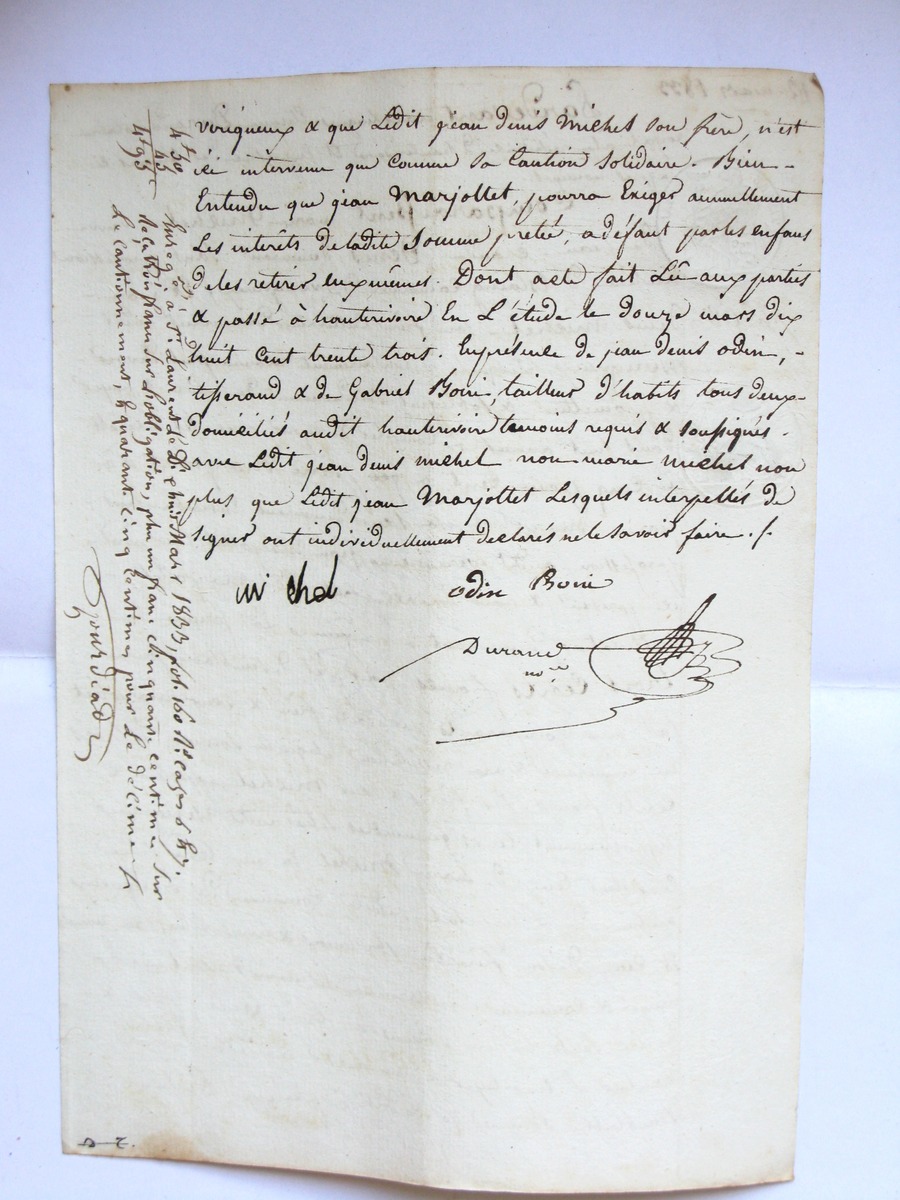 viriqueux & que Ledit jean denis Michel son frère, n'est
ici intervenu que comme sa Caution Solidaire. Bien-
Entendu que jean Marjollet, pourra Exiger annuellement
Les interêts de ladite Somme pretée, a défaut par les enfans
de les retirer eux mêmes. Dont acte fait Lû aux parties
& passé à hauterivoire En L'étude le douze mars dix
huit Cent trente trois. En présence de jean denis odin,-
tisserand & de Gabriel Boiri, tailleur d'habits tous deux-
domiciliés audit hauterivoire temoins requis & soussignés.
avec Ledit jean denis michel non marie michel non
plus que Ledit jean Marjollet Lesquels interpellés de
signer ont individuellement declarés ne le savoir faire ./.
michel
odin Boiri
Durand
no.re
4f 50
45
4f 95c
à St Laurent Le Dix huit Mars 1833, fol. 160
Reçu trois francs sur L'obligation, plus un franc cinquante centimes sur
Le cautionnement, & quarante cinq Centimes pour Le décime